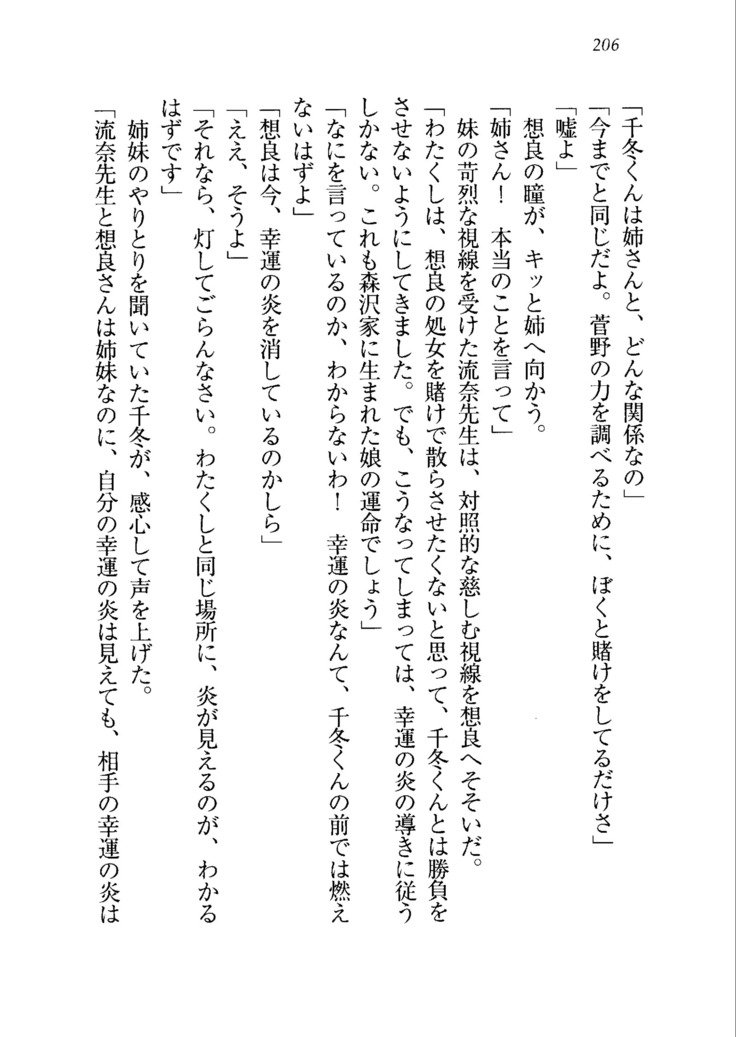 206
「千冬くんは姉さんと、どんな関係なの」
「今までと同じだよ。菅野の力を調べるために、ぼくと賭けをしてるだけさ」
「嘘よ」
　想良の瞳が、キッと姉へ向かう。
「姉さん！　本当のことを言って」
　妹の苛烈な視線を受けた流奈先生は、対照的な慈しむ視線を想良へそそいだ。
「わたくしは、想良の処女を賭けで散らさせたくないと思って、千冬くんとは勝負を
させないようにしてきました。でも、こうなってしまっては、幸運の炎の導きに従う
しかない。これも森沢家に生まれた娘の運命でしょう」
「なにを言っているのか、わからないわ！　幸運の炎なんて、千冬くんの前では燃え
ないはずよ」
「想良は今、幸運の炎を消しているのかしら」
「ええ、そうよ」
「それなら、灯してごらんなさい。わたくしと同じ場所に、炎が見えるのが、わかる
はずです」
　姉妹のやりとりを聞いていた千冬が、感心して声を上げた。
「流奈先生と想良さんは姉妹なのに、自分の幸運の炎は見えても、相手の幸運の炎は